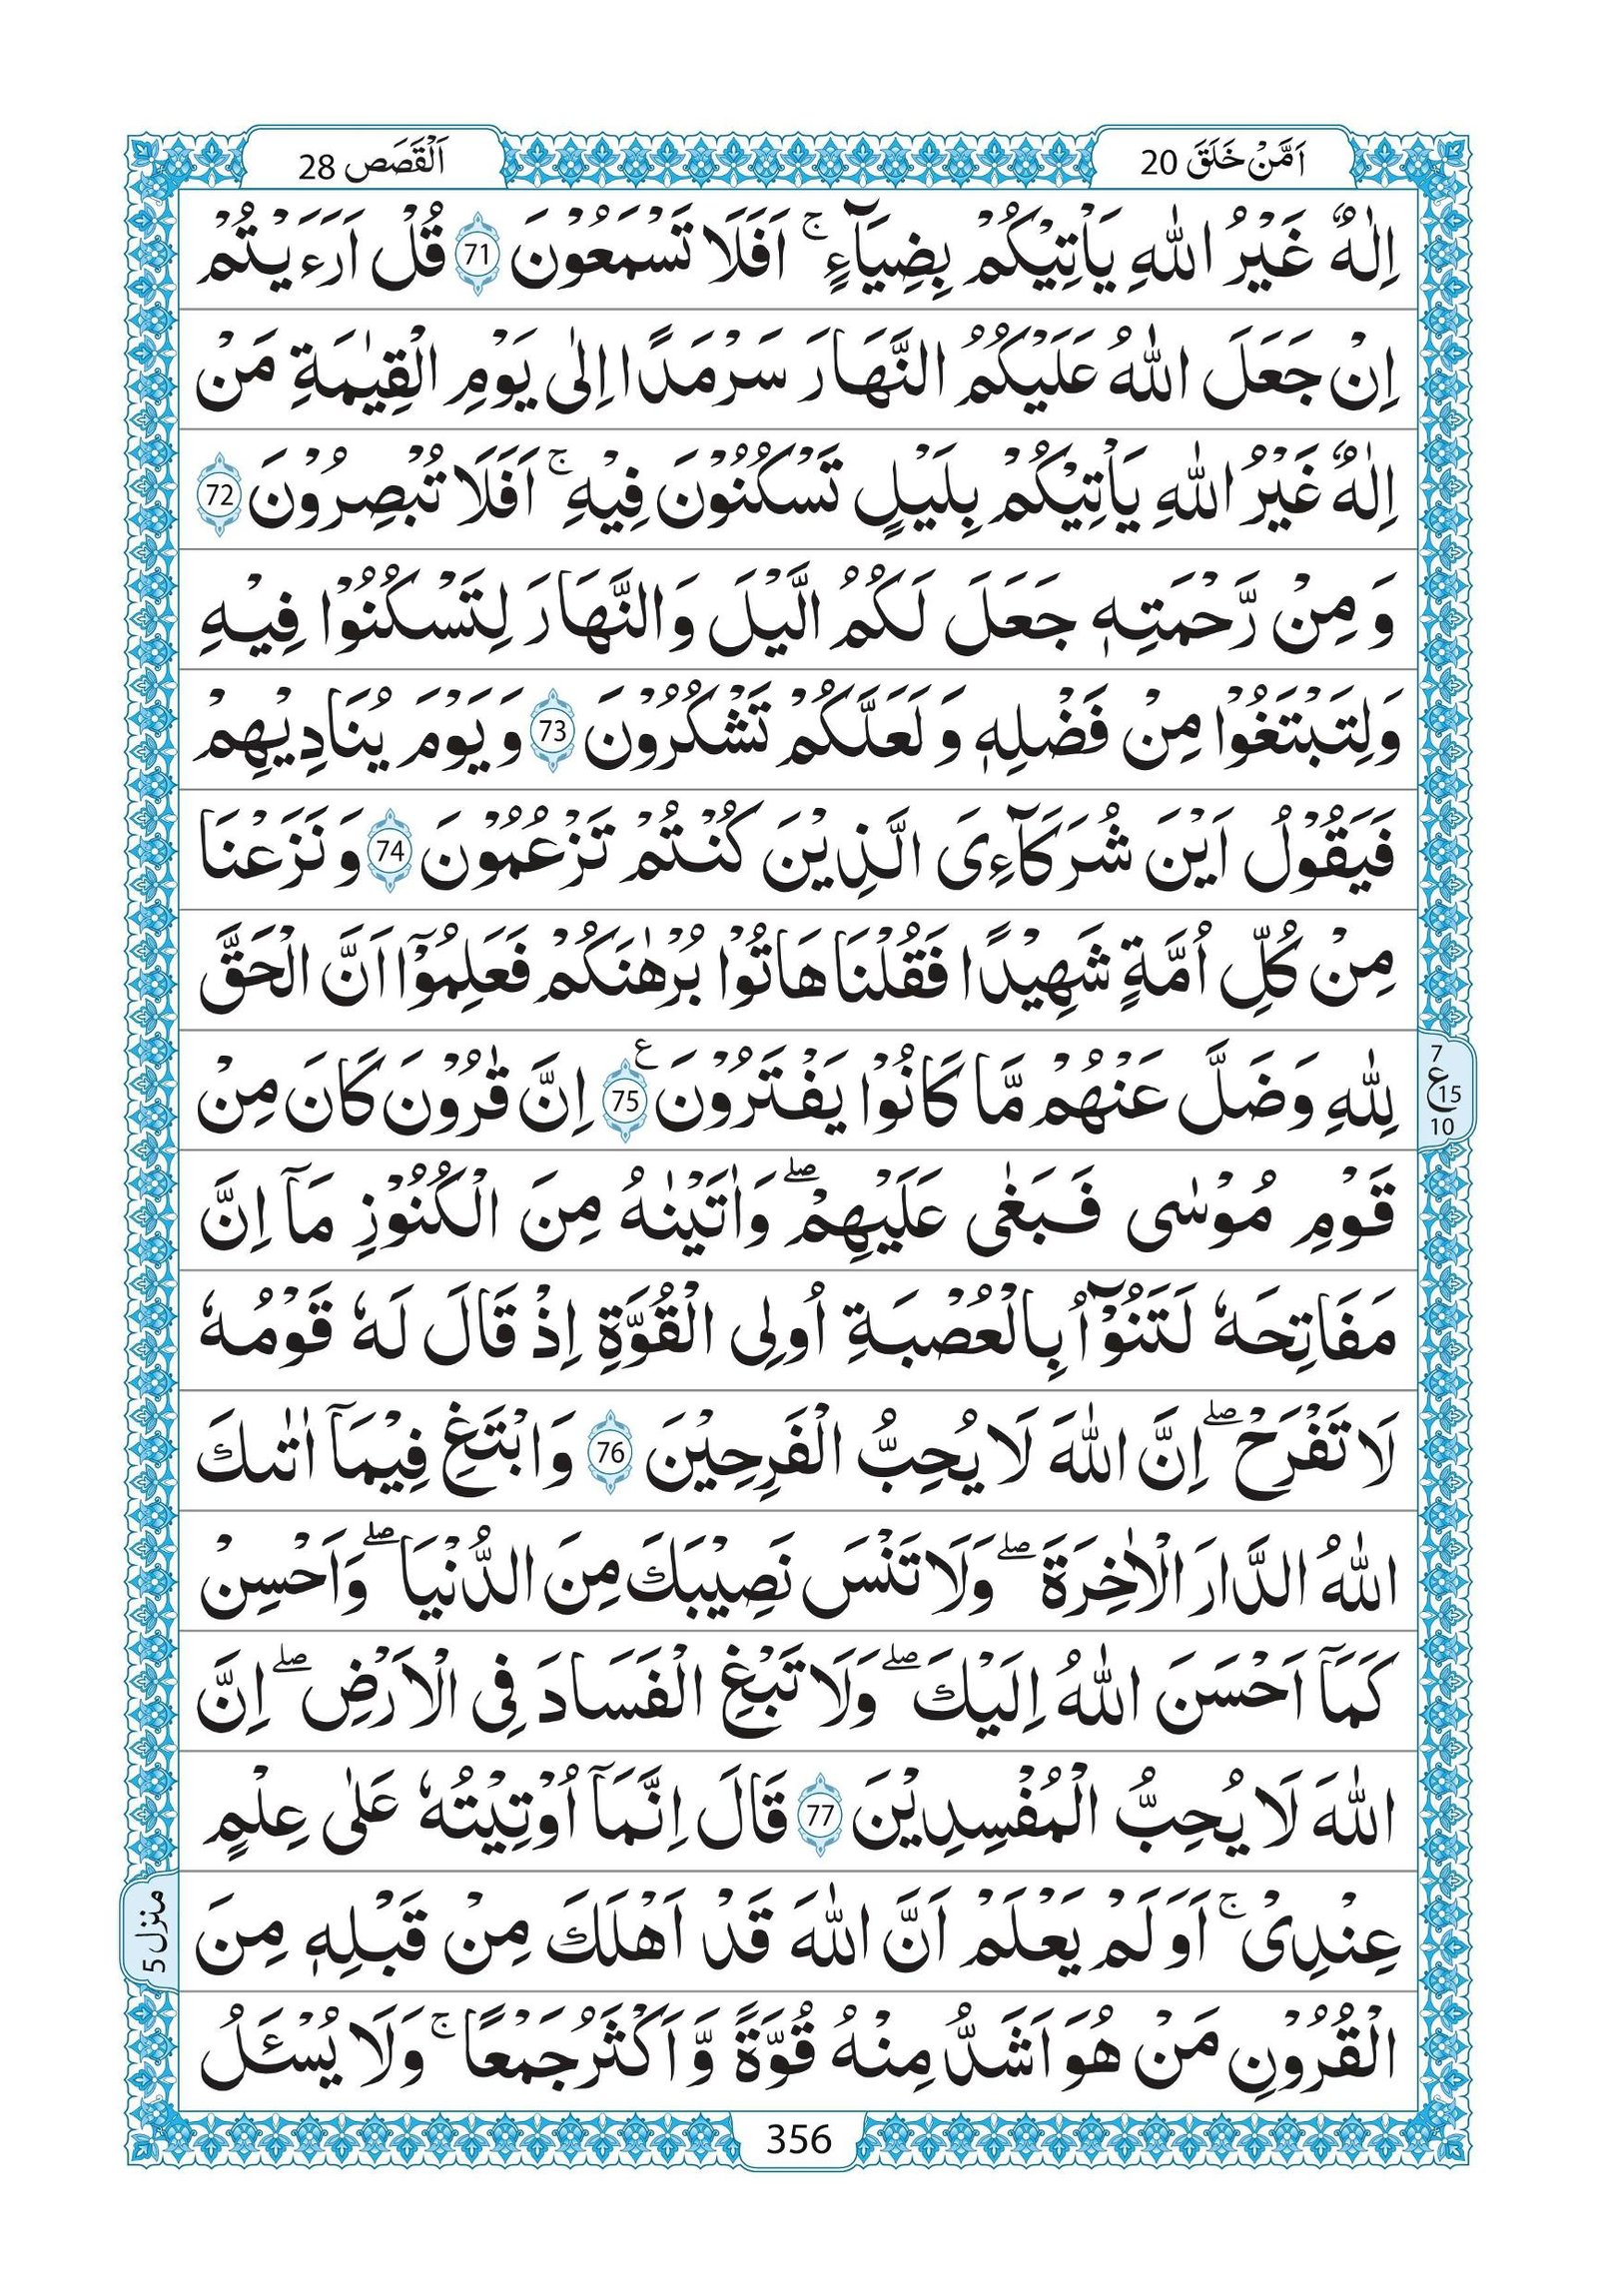 اَمَّنْ خَلَقَ 20
اَلْقَصَص 28
اِلٰهٌ غَيْرُ اللّٰهِ يَاْتِيْكُمْ بِضِيَآءٍ ؕۚ اَفَلَا تَسْمَعُوْنَ 71 قُلْ اَرَءَيْتُمْ
اِنْ جَعَلَ اللّٰهُ عَلَيْكُمُ النَّهَارَ سَرْمَدًا اِلٰى يَوْمِ الْقِيٰمَةِ مَنْ
اِلٰهٌ غَيْرُ اللّٰهِ يَاْتِيْكُمْ بِلَيْلٍ تَسْكُنُوْنَ فِيْهِ ۚ اَفَلَا تُبْصِرُوْنَ 72
وَ مِنْ رَّحْمَتِهٖ جَعَلَ لَكُمُ الَّيْلَ وَالنَّهَارَ لِتَسْكُنُوْا فِيْهِ
وَلِتَبْتَغُوْا مِنْ فَضْلِهٖ وَ لَعَلَّكُمْ تَشْكُرُوْنَ 73 وَ يَوْمَ يُنَادِيْهِمْ
فَيَقُوْلُ اَيْنَ شُرَكَآءِىَ الَّذِيْنَ كُنْتُمْ تَزْعُمُوْنَ 74 وَ نَزَعْنَا
مِنْ كُلِّ اُمَّةٍ شَهِيْدًا فَقُلْنَا هَاتُوْا بُرْهٰنَكُمْ فَعَلِمُوْۤا اَنَّ الْحَقَّ
لِلّٰهِ وَضَلَّ عَنْهُمْ مَّا كَانُوْا يَفْتَرُوْنَ ع 75 اِنَّ قٰرُوْنَ كَانَ مِنْ
7
ع 15
10
قَوْمِ مُوْسٰى فَبَغٰى عَلَيْهِمْ ۖ وَاٰتَيْنٰهُ مِنَ الْكُنُوْزِ مَاۤ اِنَّ
مَفَاتِحَهٗ لَتَنُوْٓاُ بِالْعُصْبَةِ اُولِى الْقُوَّةِ اِذْ قَالَ لَهٗ قَوْمُهٗ
لَا تَفْرَحْ ۖ اِنَّ اللّٰهَ لَا يُحِبُّ الْفَرِحِيْنَ 76 وَابْتَغِ فِيْمَاۤ اٰتٰىكَ
اللّٰهُ الدَّارَ الْاٰخِرَةَ ۖ وَلَا تَنْسَ نَصِيْبَكَ مِنَ الدُّنْيَا ۖ وَاَحْسِنْ
كَمَاۤ اَحْسَنَ اللّٰهُ اِلَيْكَ ۖ وَلَا تَبْغِ الْفَسَادَ فِى الْاَرْضِ ۖ اِنَّ
اللّٰهَ لَا يُحِبُّ الْمُفْسِدِيْنَ 77 قَالَ اِنَّمَاۤ اُوْتِيْتُهٗ عَلٰى عِلْمٍ
عِنْدِىْ ۚ اَوَ لَمْ يَعْلَمْ اَنَّ اللّٰهَ قَدْ اَهْلَكَ مِنْ قَبْلِهٖ مِنَ
منزل 5
الْقُرُوْنِ مَنْ هُوَ اَشَدُّ مِنْهُ قُوَّةً وَّ اَكْثَرُ جَمْعًا ۚ وَلَا يُسْـَٔلُ
356